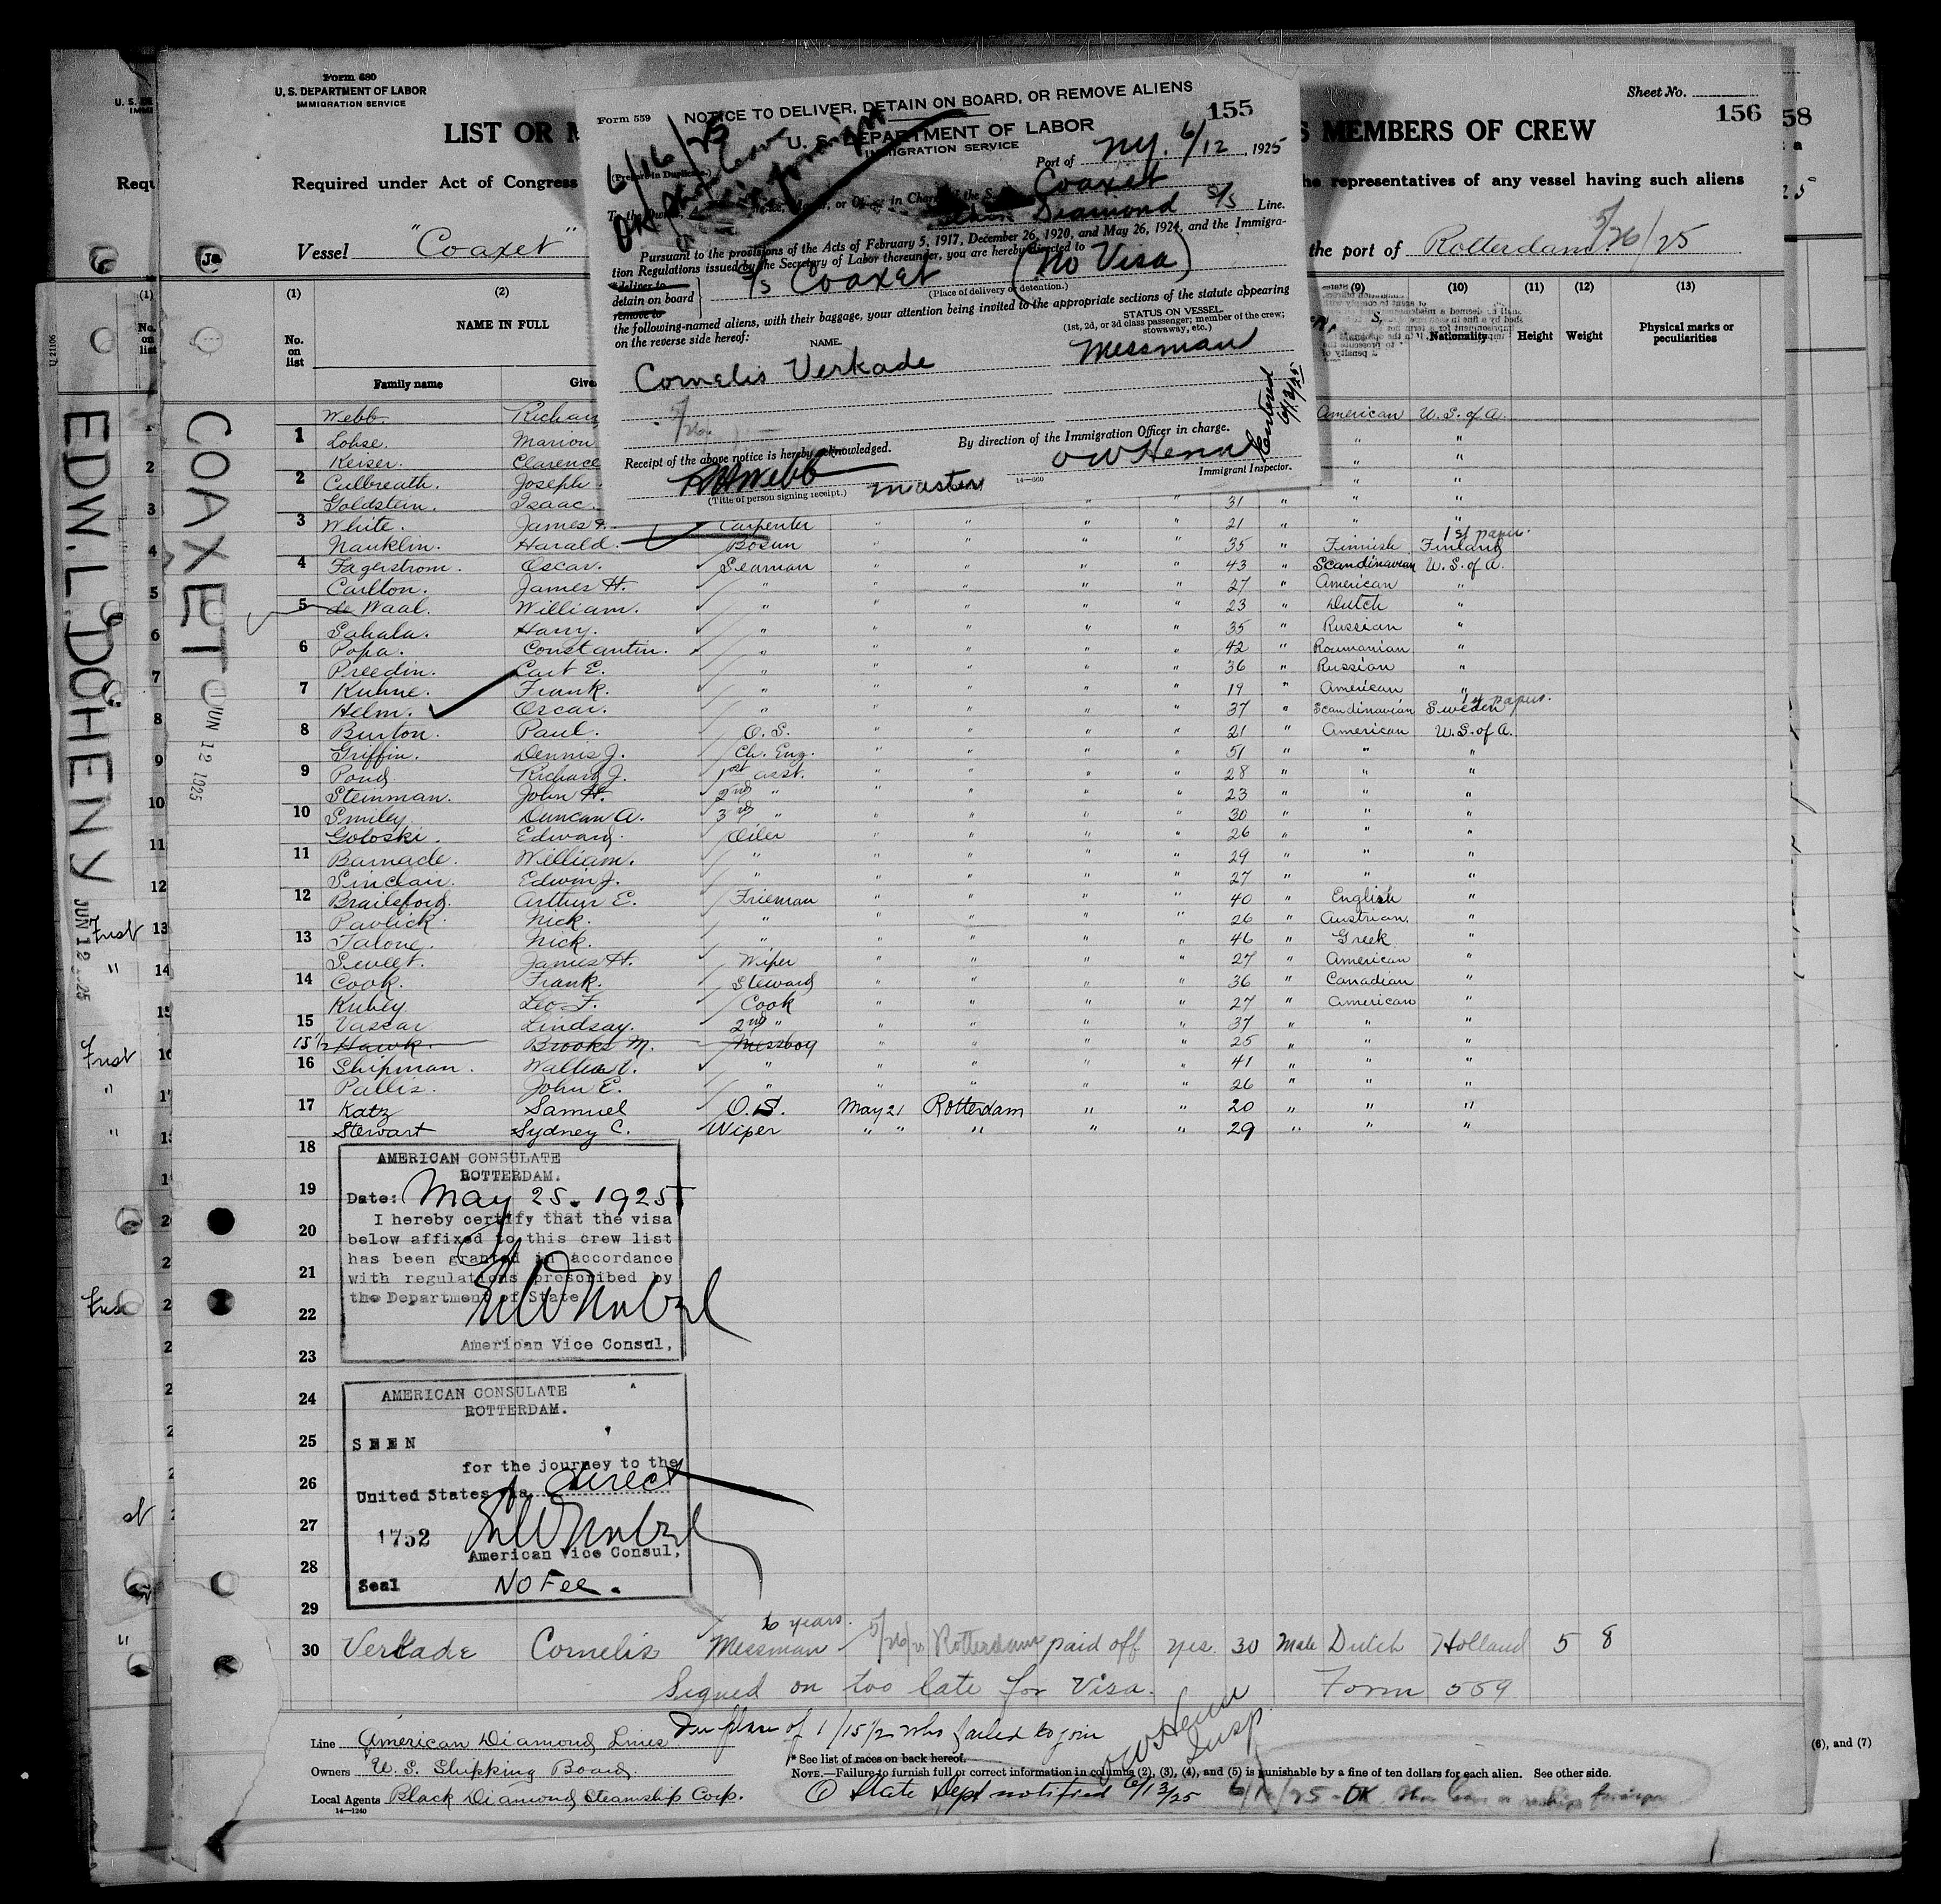 Form 680
U. S. DEPARTMENT OF LABOR
IMMIGRATION SERVICE
Sheet No.
156
58
LIST OR
S MEMBERS OF CREW
Required under Act of Congress
he representatives of any vessel having such aliens
Vessel "Coaxet"
the port of Rotterdam 5/26/25
Form 559
NOTICE TO DELIVER, DETAIN ON BOARD, OR REMOVE ALIENS
155
U. S. DEPARTMENT OF LABOR
IMMIGRATION SERVICE
6/16/25
(Prepare in Duplicate.)
Port of NY. 6/12, 1925
or Officer in Charge of the S.S. Coaxet
Diamond S/S Line.
Pursuant to the provisions of the Acts of February 5, 1917, December 26, 1920, and May 26, 1924, and the Immigra-
tion Regulations issued by the Secretary of Labor thereunder, you are hereby directed to
deliver to
detain on board
remove to
S/S Coaxet (No Visa)
(Place of delivery or detention.)
the following-named aliens, with their baggage, your attention being invited to the appropriate sections of the statute appearing
on the reverse side hereof:
NAME.
STATUS ON VESSEL.
(1st, 2d, or 3d class passenger; member of the crew;
stowaway, etc.)
Cornelis Verkade Messman
Entered 6/13/25
By direction of the Immigration Officer in charge.
Receipt of the above notice is hereby acknowledged.
Immigrant Inspector.
Webb master
(Title of person signing receipt.)
14—660
(1) (2) (9) (10) (11) (12) (13)
No. on list
NAME IN FULL
Nationality
Height
Weight
Physical marks or peculiarities
Family name
COAXET
JUN 12 1925
EDW. L. DOHENY
JUN 12 25
U 21106
Webb. American U. S. of A.
1 Lohse. Marion " "
Keiser. Clarence " "
2 Culbreath. Joseph. " "
Goldstein. Isaac. " " 31 " " "
3 White. James Carpenter " " " " 21 " " "
Nauklin. Harald. Bosun " " " " 35 " Finnish Finland 1st paper.
4 Fagerstrom. Oscar. Seaman " " " " 43 " Scandinavian U. S. of A.
Carlton. James H. " " " " " 27 " American "
5 de Waal. William. " " " " " 23 " Dutch "
Sahala. Harry. " " " " " 35 " Russian "
6 Popa. Constantin. " " " " " 42 " Roumanian "
Preedin. Carl E. " " " " " 36 " Russian "
7 Kuhne. Frank. " " " " " 19 " American "
Helm. Oscar. " " " " " 37 " Scandinavian Sweden 1st paper.
8 Burton. Paul. O. S. " " " " 21 " American U. S. of A.
Griffin. Dennis J. Ch. Eng. " " " " 51 " " "
9 Pond. Richard J. 1st asst. " " " " 28 " " "
Steinman. John H. 2nd " " " " " 23 " " "
10 Smiley. Duncan A. 3rd " " " " " 30 " " "
Goloski. Edward. Oiler " " " " 26 " " "
11 Barnade. William. " " " " " 29 " " "
Sinclair. Edwin J. " " " " " 27 " " "
12 Brailsford. Arthur E. Frieman " " " " 40 " English "
Pavlick. Nick. " " " " " 26 " Austrian. "
13 Talone. Nick. " " " " " 46 " Greek "
Sweet. James H. Wiper " " " " 27 " American "
14 Cook. Frank. Steward " " " " 36 " Canadian "
Kubey Leo F. Cook " " " " 27 " American "
15 Vassar Lindsay. 2nd " " " " " 37 " " "
15 1/2 Hawk. Brooks M. Messboy " " " " 25 " " "
16 Shipman. Walter V. " " " " " 41 " " "
Pulles. John E. " " " " " 26 " " "
17 Katz Samuel O. S. May 21 Rotterdam " " 20 " " "
Stewart Sydney C. Wiper " " " " " 29 " " "
18
19
20
21
22
23
24
25
26
27
28
29
AMERICAN CONSULATE
ROTTERDAM.
Date: May 25. 1925
I hereby certify that the visa
below affixed to this crew list
has been granted in accordance
with regulations prescribed by
the Department of State
American Vice Consul,
AMERICAN CONSULATE
ROTTERDAM.
SEEN
for the journey to the
United States via direct
1752
American Vice Consul,
Seal No Fee.
6 years.
30 Verkade Cornelis Messman 5/26/25 Rotterdam paid off yes. 30 Male Dutch Holland 5 8
Signed on too late for Visa. Form 559
In place of 1/15 1/2 who failed to join
Insp.
Line American Diamond Lines
* See list of races on back hereof.
Owners U. S. Shipping Board.
NOTE.—Failure to furnish full or correct information in columns (2), (3), (4), and (5) is punishable by a fine of ten dollars for each alien. See other side.
Local Agents Black Diamond Steamship Corp.
State Dept notified 6/13/25
14—1240
(6), and (7)